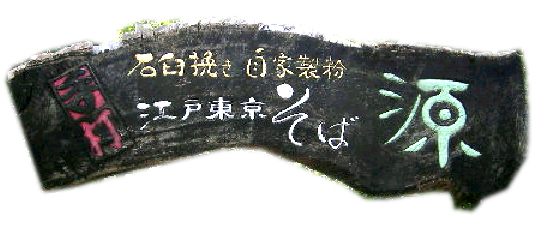 石臼挽き 自家製粉
江戸東京そば
源